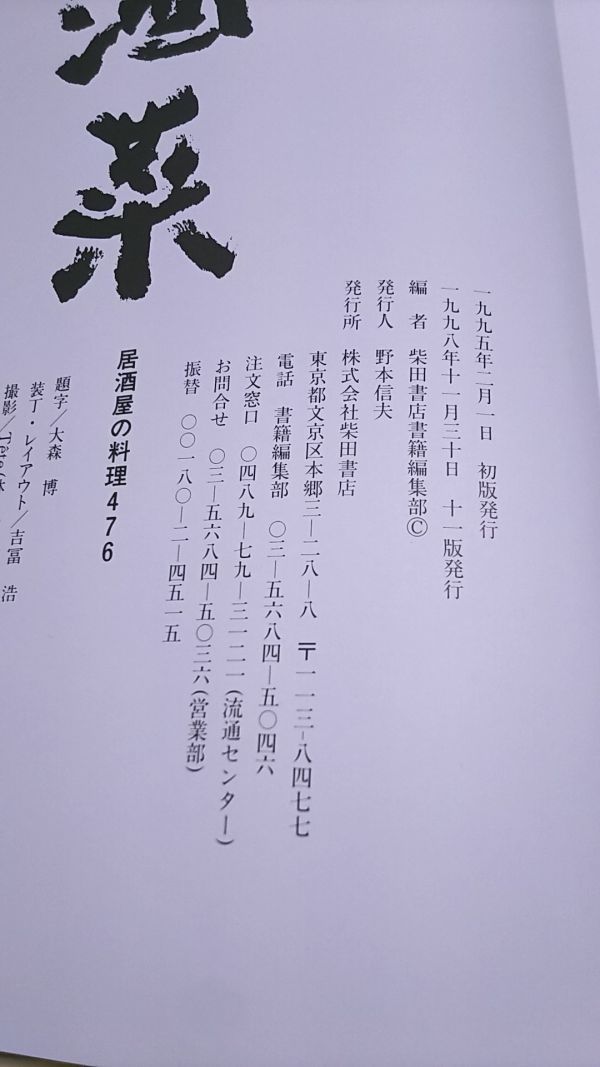 酒菜
居酒屋の料理476
一九九五年二月一日　初版発行
一九九八年十一月三十日　十一版発行
編　者　柴田書店書籍編集部Ⓒ
発行人　野本信夫
発行所　株式会社柴田書店
東京都文京区本郷三―二八―八　〒一一三-八四七七
電話　書籍編集部　〇三―五六八四―五〇四六
注文窓口　〇四八九―七九―三一二一(流通センター)
お問合せ　〇三―五六八四―五〇三六(営業部)
振替　〇〇一八〇―二―四五一五
題字/大森　博
装丁・レイアウト/吉冨　浩
撮影/